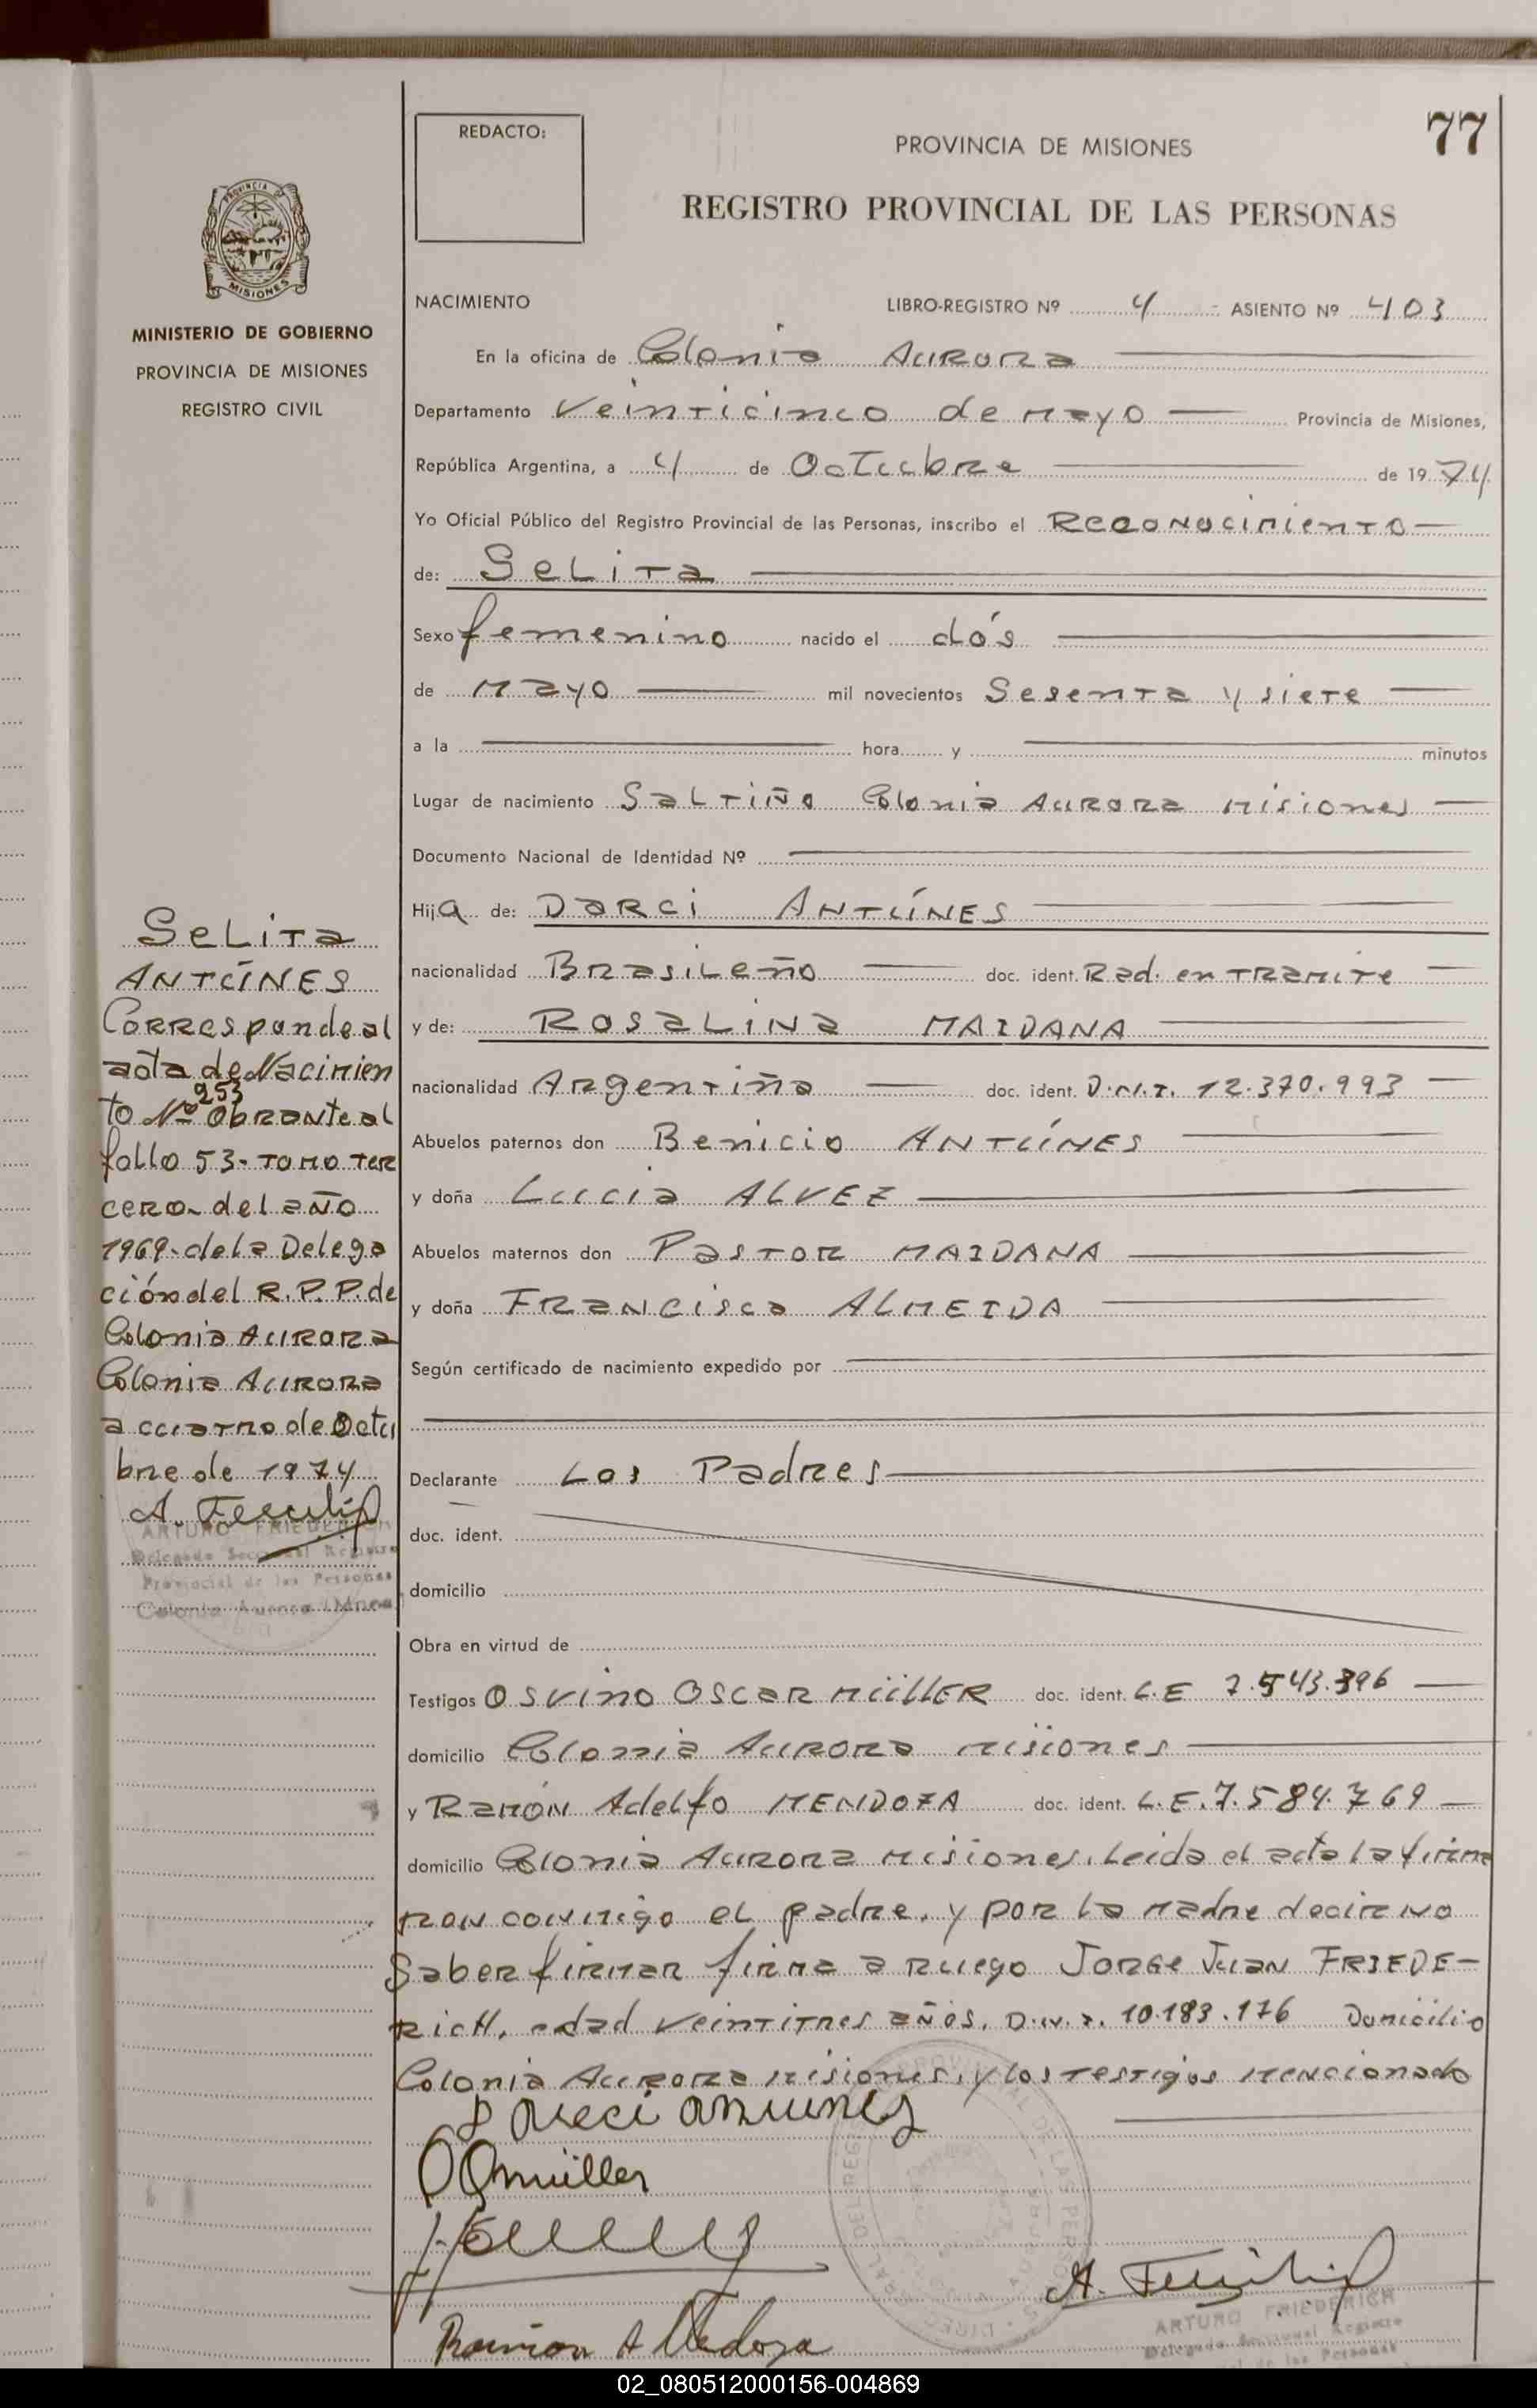 77
REDACTO:
PROVINCIA DE MISIONES
REGISTRO PROVINCIAL DE LAS PERSONAS
PROVINCIA DE
MISIONES
MINISTERIO DE GOBIERNO
PROVINCIA DE MISIONES
REGISTRO CIVIL
NACIMIENTO LIBRO-REGISTRO Nº 4 - ASIENTO Nº 403
En la oficina de Colonia AURORA
Departamento Veinticinco de mayo Provincia de Misiones,
República Argentina, a 4 de Octubre de 1974
Yo Oficial Público del Registro Provincial de las Personas, inscribo el Reconocimiento
de: SeLiTa
Sexo femenino nacido el dós
de Mayo mil novecientos Sesenta y siete
a la hora y minutos
Lugar de nacimiento SaLTiño Colonia AURORA misiones
Documento Nacional de Identidad Nº
Hija de: DARCi ANTÚNES
nacionalidad BRasiLeño doc. ident. Rad. en TRamite
y de: ROSaLiNa MAIDANA
nacionalidad Argentiña doc. ident. D.N.I. 12.370.993
Abuelos paternos don Benicio ANTÚNES
y doña Lucia ALVEZ
Abuelos maternos don PasTOR MAIDANA
y doña FRANCisca ALMEIDA
Según certificado de nacimiento expedido por
Declarante Los Padres
doc. ident.
domicilio
Obra en virtud de
Testigos OSVINO OSCAR MüllER doc. ident. L.E 7.543.396
domicilio Colonia AURORA misiones
y RAMÓN Adelfo MENDOZA doc. ident. L.E. 7.584.769
domicilio Colonia AURORA misiones. Leida el acta la firma
RON conmigo el padre, y por la madre decir no
Saber firmar firma a ruego JORGE JUAN FRIEDE-
RICH, edad veintitres años, D.N.I. 10.183.176 Domicilio
Colonia AURORA misiones, y los testigos mencionado
Darci antunes
OOmüller
Ramon A Mendoza
ARTURO FRIEDERICH
Delegado Seccional Registro
Provincial de las Personas
SeLiTa
ANTÚNES
Corresponde al
acta de Nacimien
to Nº 253 Obrante al
follo 53- TOMO TER
cero- del año
1969- de la Delega
ción del R.P.P. de
Colonia AURORA
Colonia AURORA
a cuatro de Octu
bre de 1974
ARTURO FRIEDERICH
Delegado Seccional Registro
Provincial de las Personas
Colonia Aurora (Mnes
02_080512000156-004869